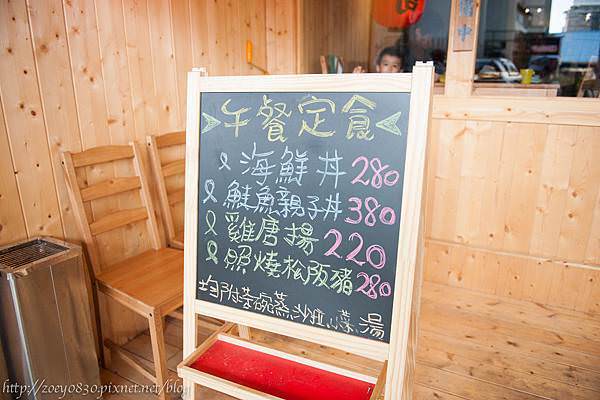 午餐定食
海鮮丼 280
鮭魚親子丼 380
雞唐揚 220
照燒松阪豬 280
均附茶碗蒸.沙拉.小菜.湯
http://zoey0830.pixnet.net/blog